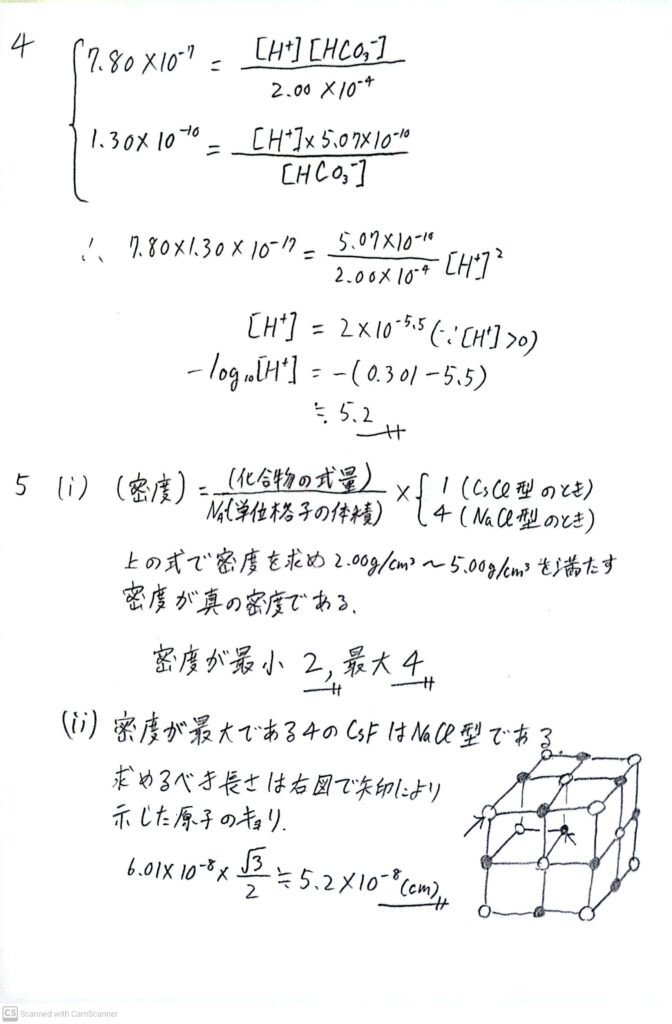 4
7.80×10⁻⁷ = [H⁺][HCO₃⁻] / 2.00×10⁻⁴
1.30×10⁻¹⁰ = [H⁺]×5.07×10⁻¹⁰ / [HCO₃⁻]
∴ 7.80×1.30×10⁻¹⁷ = 5.07×10⁻¹⁰ / 2.00×10⁻⁴ [H⁺]²
[H⁺] = 2×10⁻⁵·⁵ (∵[H⁺]>0)
−log₁₀[H⁺] = −(0.301−5.5)
≒ 5.2
5 (i) (密度) = (化合物の式量) / N_A(単位格子の体積) × { 1 (CsCl型のとき)
4 (NaCl型のとき)
上の式で密度を求め 2.00g/cm³〜5.00g/cm³を満たす
密度が真の密度である.
密度が最小 2, 最大 4
(ii) 密度が最大である4のCsFはNaCl型である.
求めるべき長さは右図で矢印により
示した原子のキョリ.
6.01×10⁻⁸ × √3/2 ≒ 5.2×10⁻⁸ (cm)
CS Scanned with CamScanner